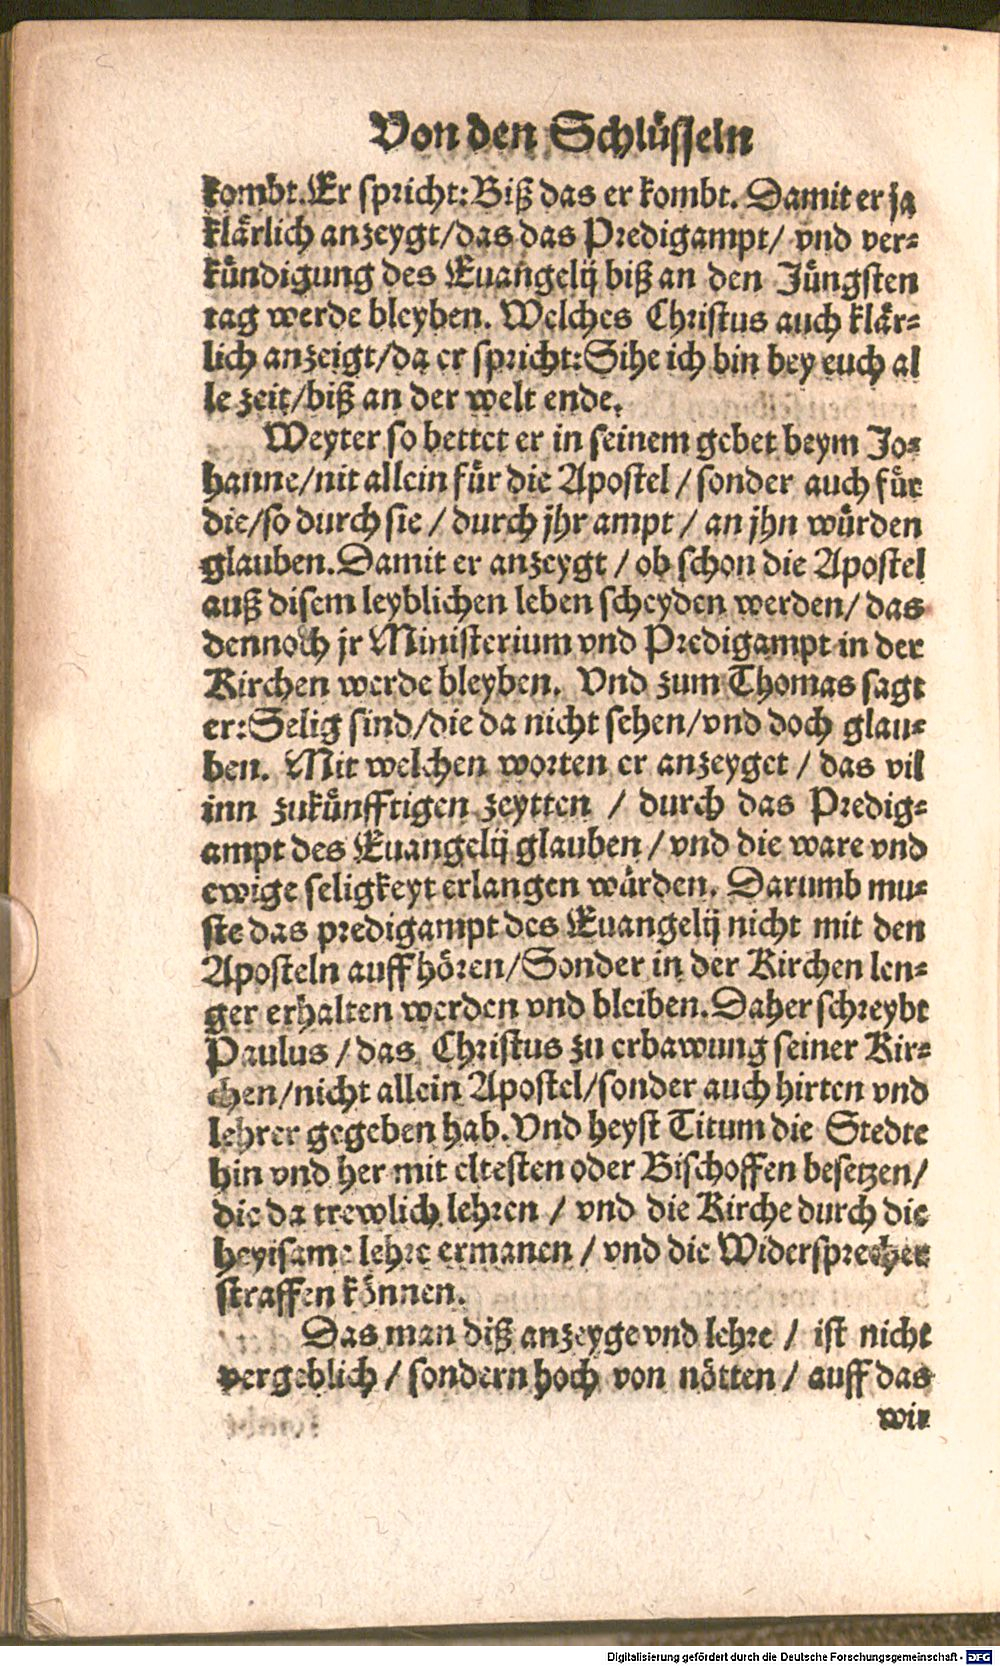 Von den Schlüsseln
kombt. Er spricht: Biß das er kombt. Damit er ja
klärlich anzeygt/das das Predigampt/ vnd ver⸗
kündigung des Euangelij biß an den Jüngsten
tag werde bleyben. Welches Christus auch klär⸗
lich anzeigt/da er spricht: Sihe ich bin bey euch al
le zeit/biß an der welt ende.
Weyter so bettet er in seinem gebet beym Jo⸗
hanne/nit allein für die Apostel / sonder auch für
die/so durch sie / durch jhr ampt / an jhn würden
glauben. Damit er anzeygt / ob schon die Apostel
auß disem leyblichen leben scheyden werden/ das
dennoch jr Ministerium vnd Predigampt in der
Kirchen werde bleyben. Vnd zum Thomas sagt
er: Selig sind/die da nicht sehen/vnd doch glau⸗
ben. Mit welchen worten er anzeyget / das vil
inn zukünfftigen zeytten / durch das Predig⸗
ampt des Euangelij glauben / vnd die ware vnd
ewige seligkeyt erlangen würden. Darumb mu⸗
ste das predigampt des Euangelij nicht mit den
Aposteln auffhören/Sonder in der Kirchen len⸗
ger erhalten werden vnd bleiben. Daher schreybt
Paulus / das Christus zu erbawung seiner Kir⸗
chen/nicht allein Apostel/sonder auch hirten vnd
lehrer gegeben hab. Vnd heyst Titum die Stedte
hin vnd her mit eltesten oder Bischoffen besetzen/
die da trewlich lehren / vnd die Kirche durch die
heylsame lehre ermanen / vnd die Widersprecher
straffen können.
Das man diß anzeyge vnd lehre / ist nicht
vergeblich / sondern hoch von nötten / auff das
wir
Digitalisierung gefördert durch die Deutsche Forschungsgemeinschaft - DFG